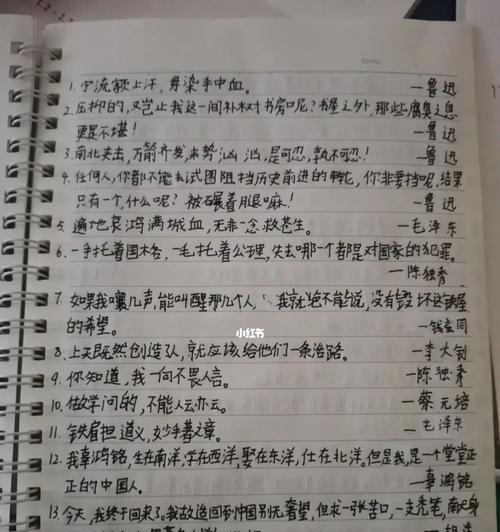 Date.
1. 宁流额上汗，毋染手中血。
—鲁迅
2. 压抑的，又岂止我这一间补树书房呢？书屋之外，那些腐臭之息
更是不堪！ —鲁迅
3. 南北夹击，万箭齐发，来势汹汹，是可忍，孰不可忍！ —鲁迅
4. 任何人，你都不能去试图阻挡历史前进的轮，你非要挡呢，结果
只有一个，什么呢？被碾着腿嘛！ —鲁迅
5. 遍地哀鸿满城血，无非一念救苍生。 —毛泽东
6. 一手托着国格，一手托着公理，失去哪一个都是对国家的犯罪。
—陈独秀
7. 如果我嚷几声，能叫醒那几个人，我就绝不能说，没有毁坏这铁屋
的希望。 —钱玄同
小红书
8. 上天既然创造了人，就应该给他们一条活路。 —李大钊
9. 你知道，我一向不畏人言。 —陈独秀
10. 做学问的，不能人云亦云。 —蔡元培
11. 铁肩担道义，妙手著文章。 —毛泽东
12. 我辜鸿铭，生在南洋，学在西洋，娶在东洋，仕在北洋。但是我，是一个堂堂正
正的中国人。 —辜鸿铭
13. 今天，我终于回来了。我故送回中国别无奢望，但求一张苦口，一支秃笔，